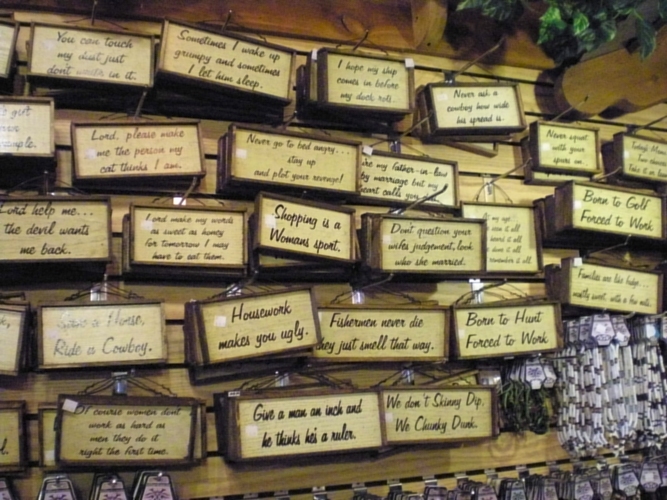 You can touch
my dust just
don't write in it.
Sometimes I wake up
grumpy and sometimes
I let him sleep.
I hope my ship
comes in before
my dock rots.
Never ask a
cowboy how wide
his spread is.
Lord, please make
me the person my
cat thinks I am.
Never go to bed angry...
stay up
and plot your revenge!
my father-in-law
by marriage but my
heart calls you
Never squat
with your
spurs on.
Today's
Two
Take it
Lord help me...
the devil wants
me back.
Lord make my words
as sweet as honey
for tomorrow I may
have to eat them.
Shopping is a
Womans sport.
Dont question your
wifes judgement, look
who she married.
my age
seen it all
heard it all
done it all
remember it all.
Born to Golf
Forced to Work
Families are like fudge...
mostly sweet, with a few nuts.
Save a Horse,
Ride a Cowboy.
Housework
makes you ugly.
Fishermen never die
they just smell that way.
Born to Hunt
Forced to Work
Of course women dont
work as hard as
men they do it
right the first time.
Give a man an inch and
he thinks he's a ruler.
We don't Skinny Dip,
We Chunky Dunk.